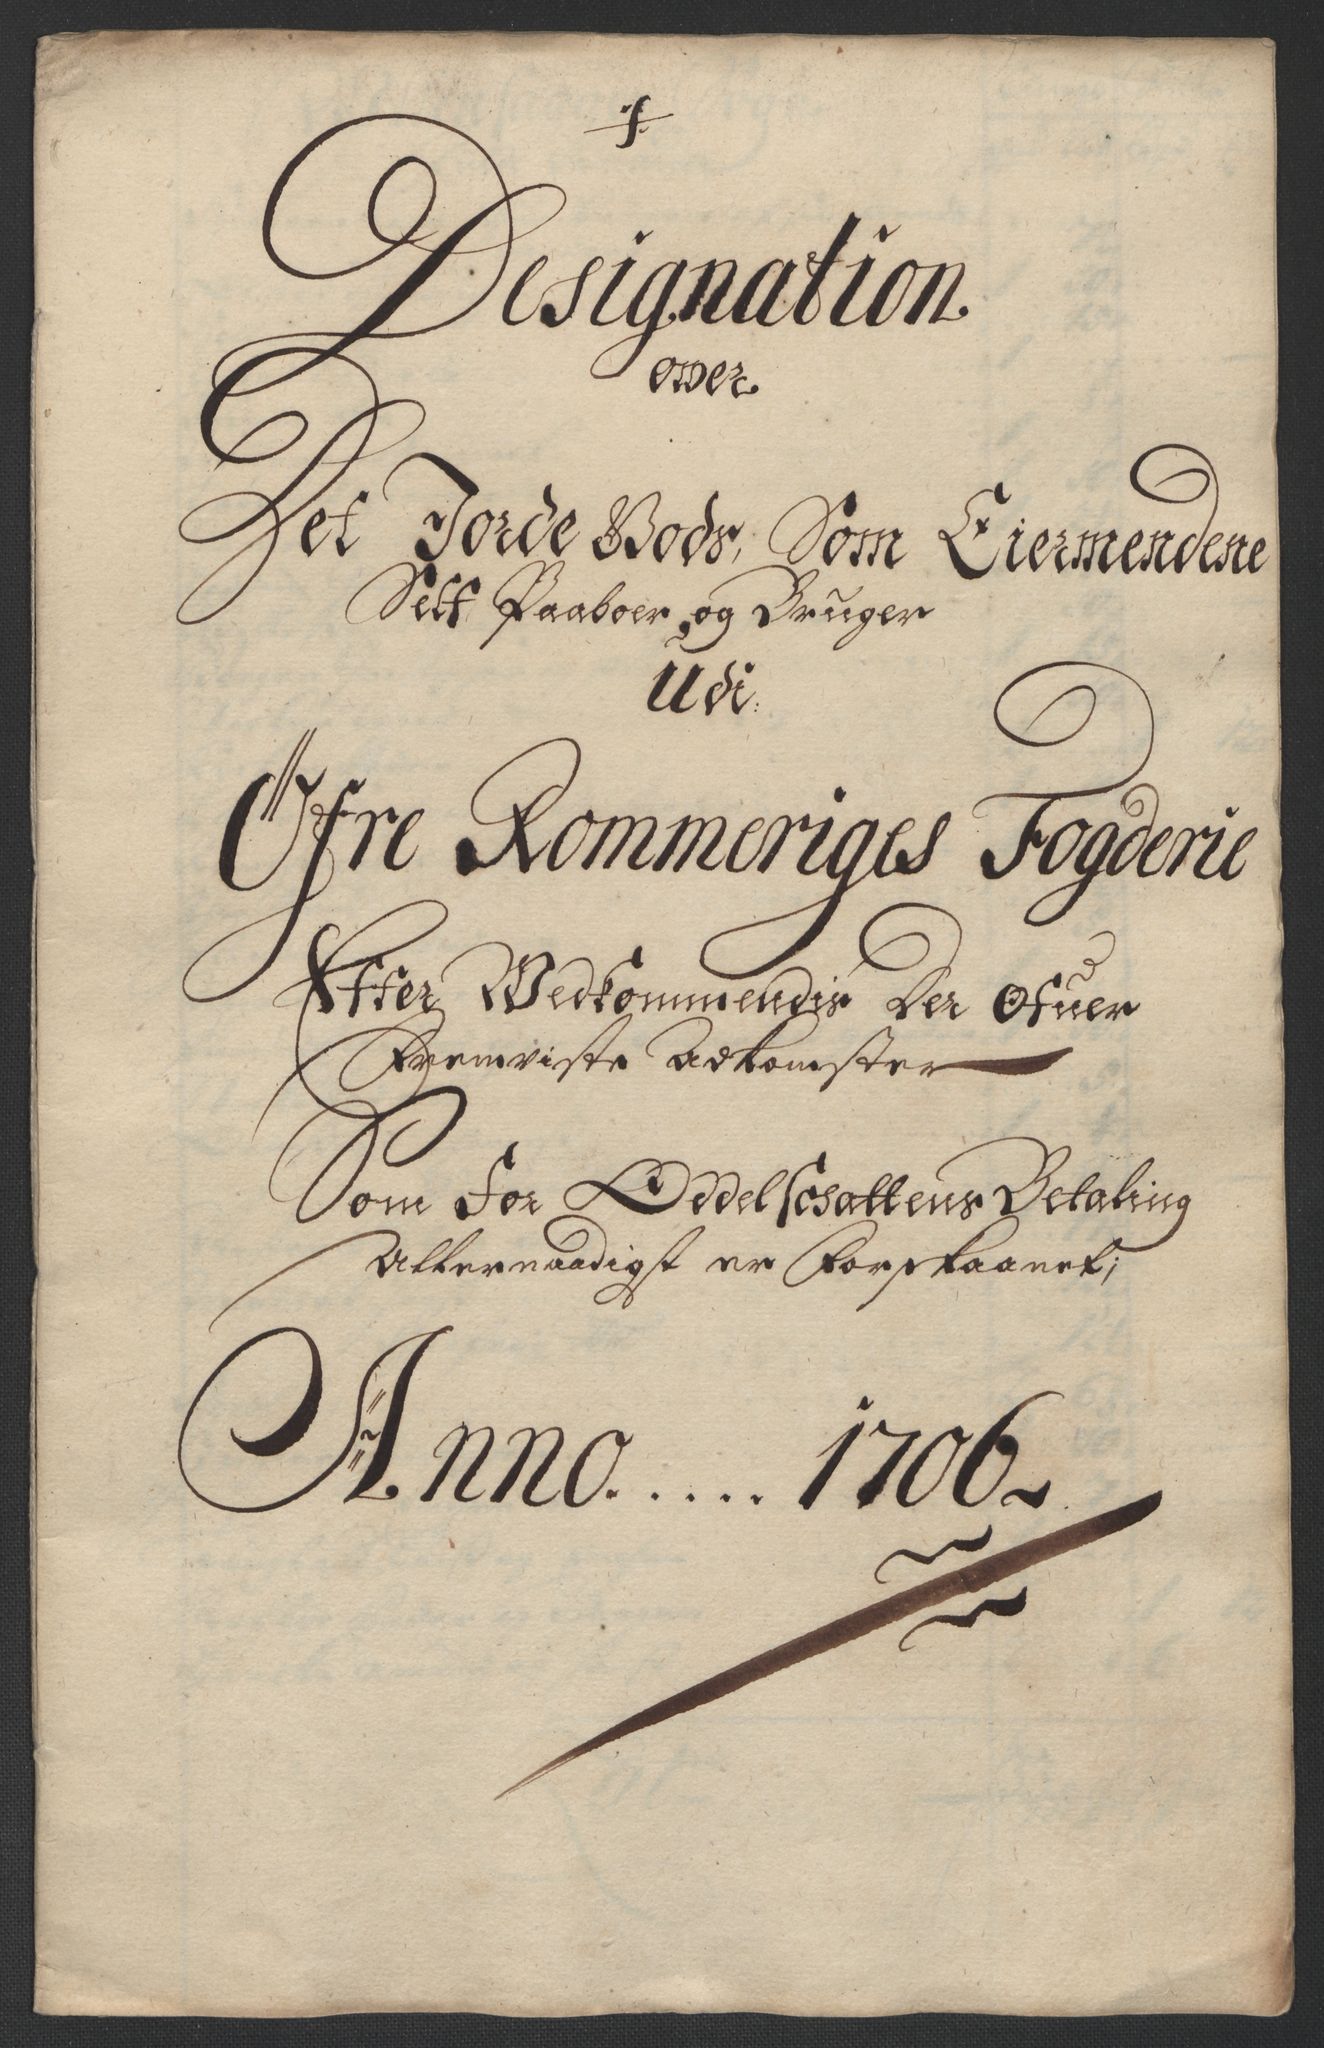 Designation
over
Det Jorde Gods, Som Eiermendene
Self Paaboer og Bruger
Udi
Øfre Rommeriges Fogderie
Effter Wedkommendis der Ofuer
fremviste Adkomster
Som for Oddelschattens Betaling
Allernaadigst er forskaanet;
Anno..... 1706